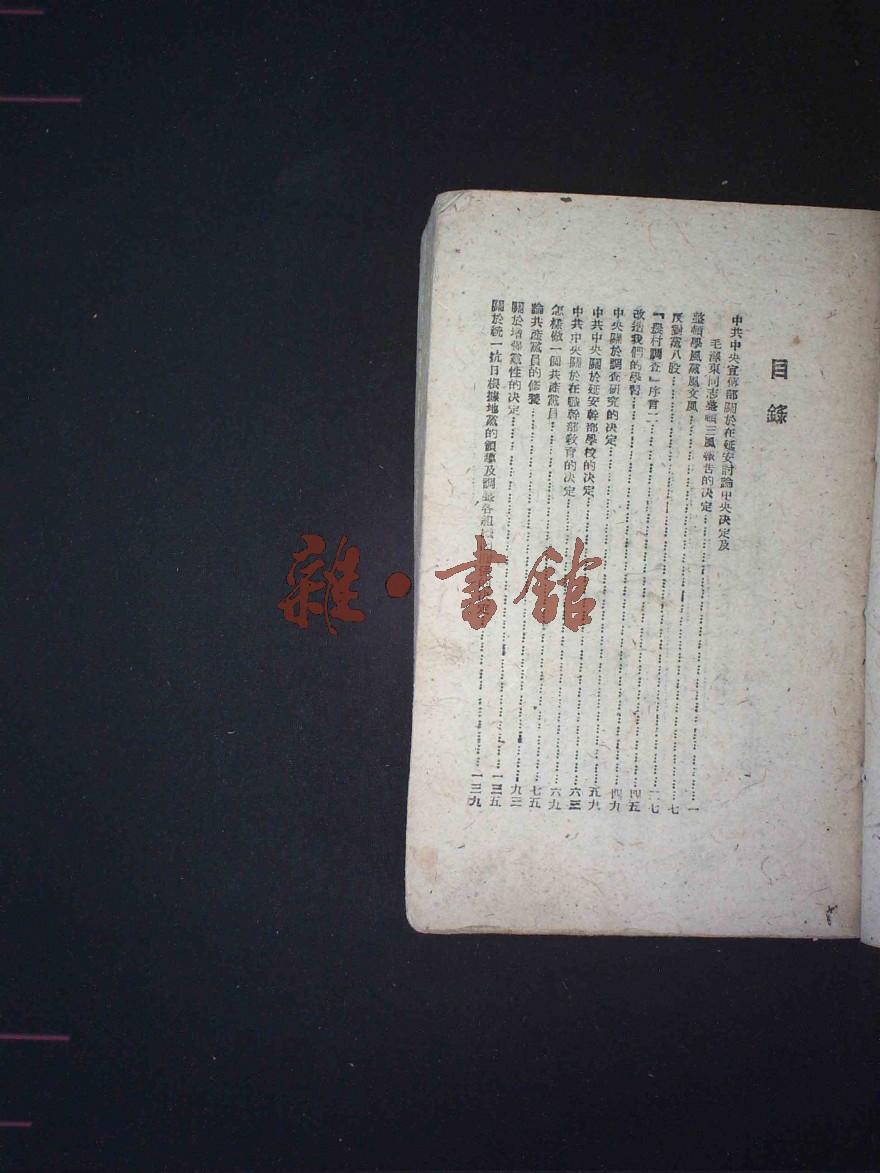 目錄
中共中央宣傳部關於在延安討論中央决定及
毛澤東同志整頓三風報告的决定……一
整頓學風黨風文風……七
反對黨八股……二七
『農村調查』序言二……四五
改造我們的學習……四九
中央關於調查研究的决定……五九
中共中央關於延安幹部學校的决定……六三
中共中央關於在職幹部教育的决定……六九
怎樣做一個共產黨員……七五
論共產黨員的修養……九三
關於增强黨性的决定……一三五
關於統一抗日根據地黨的領導及調整各組……一三九
雜·書館